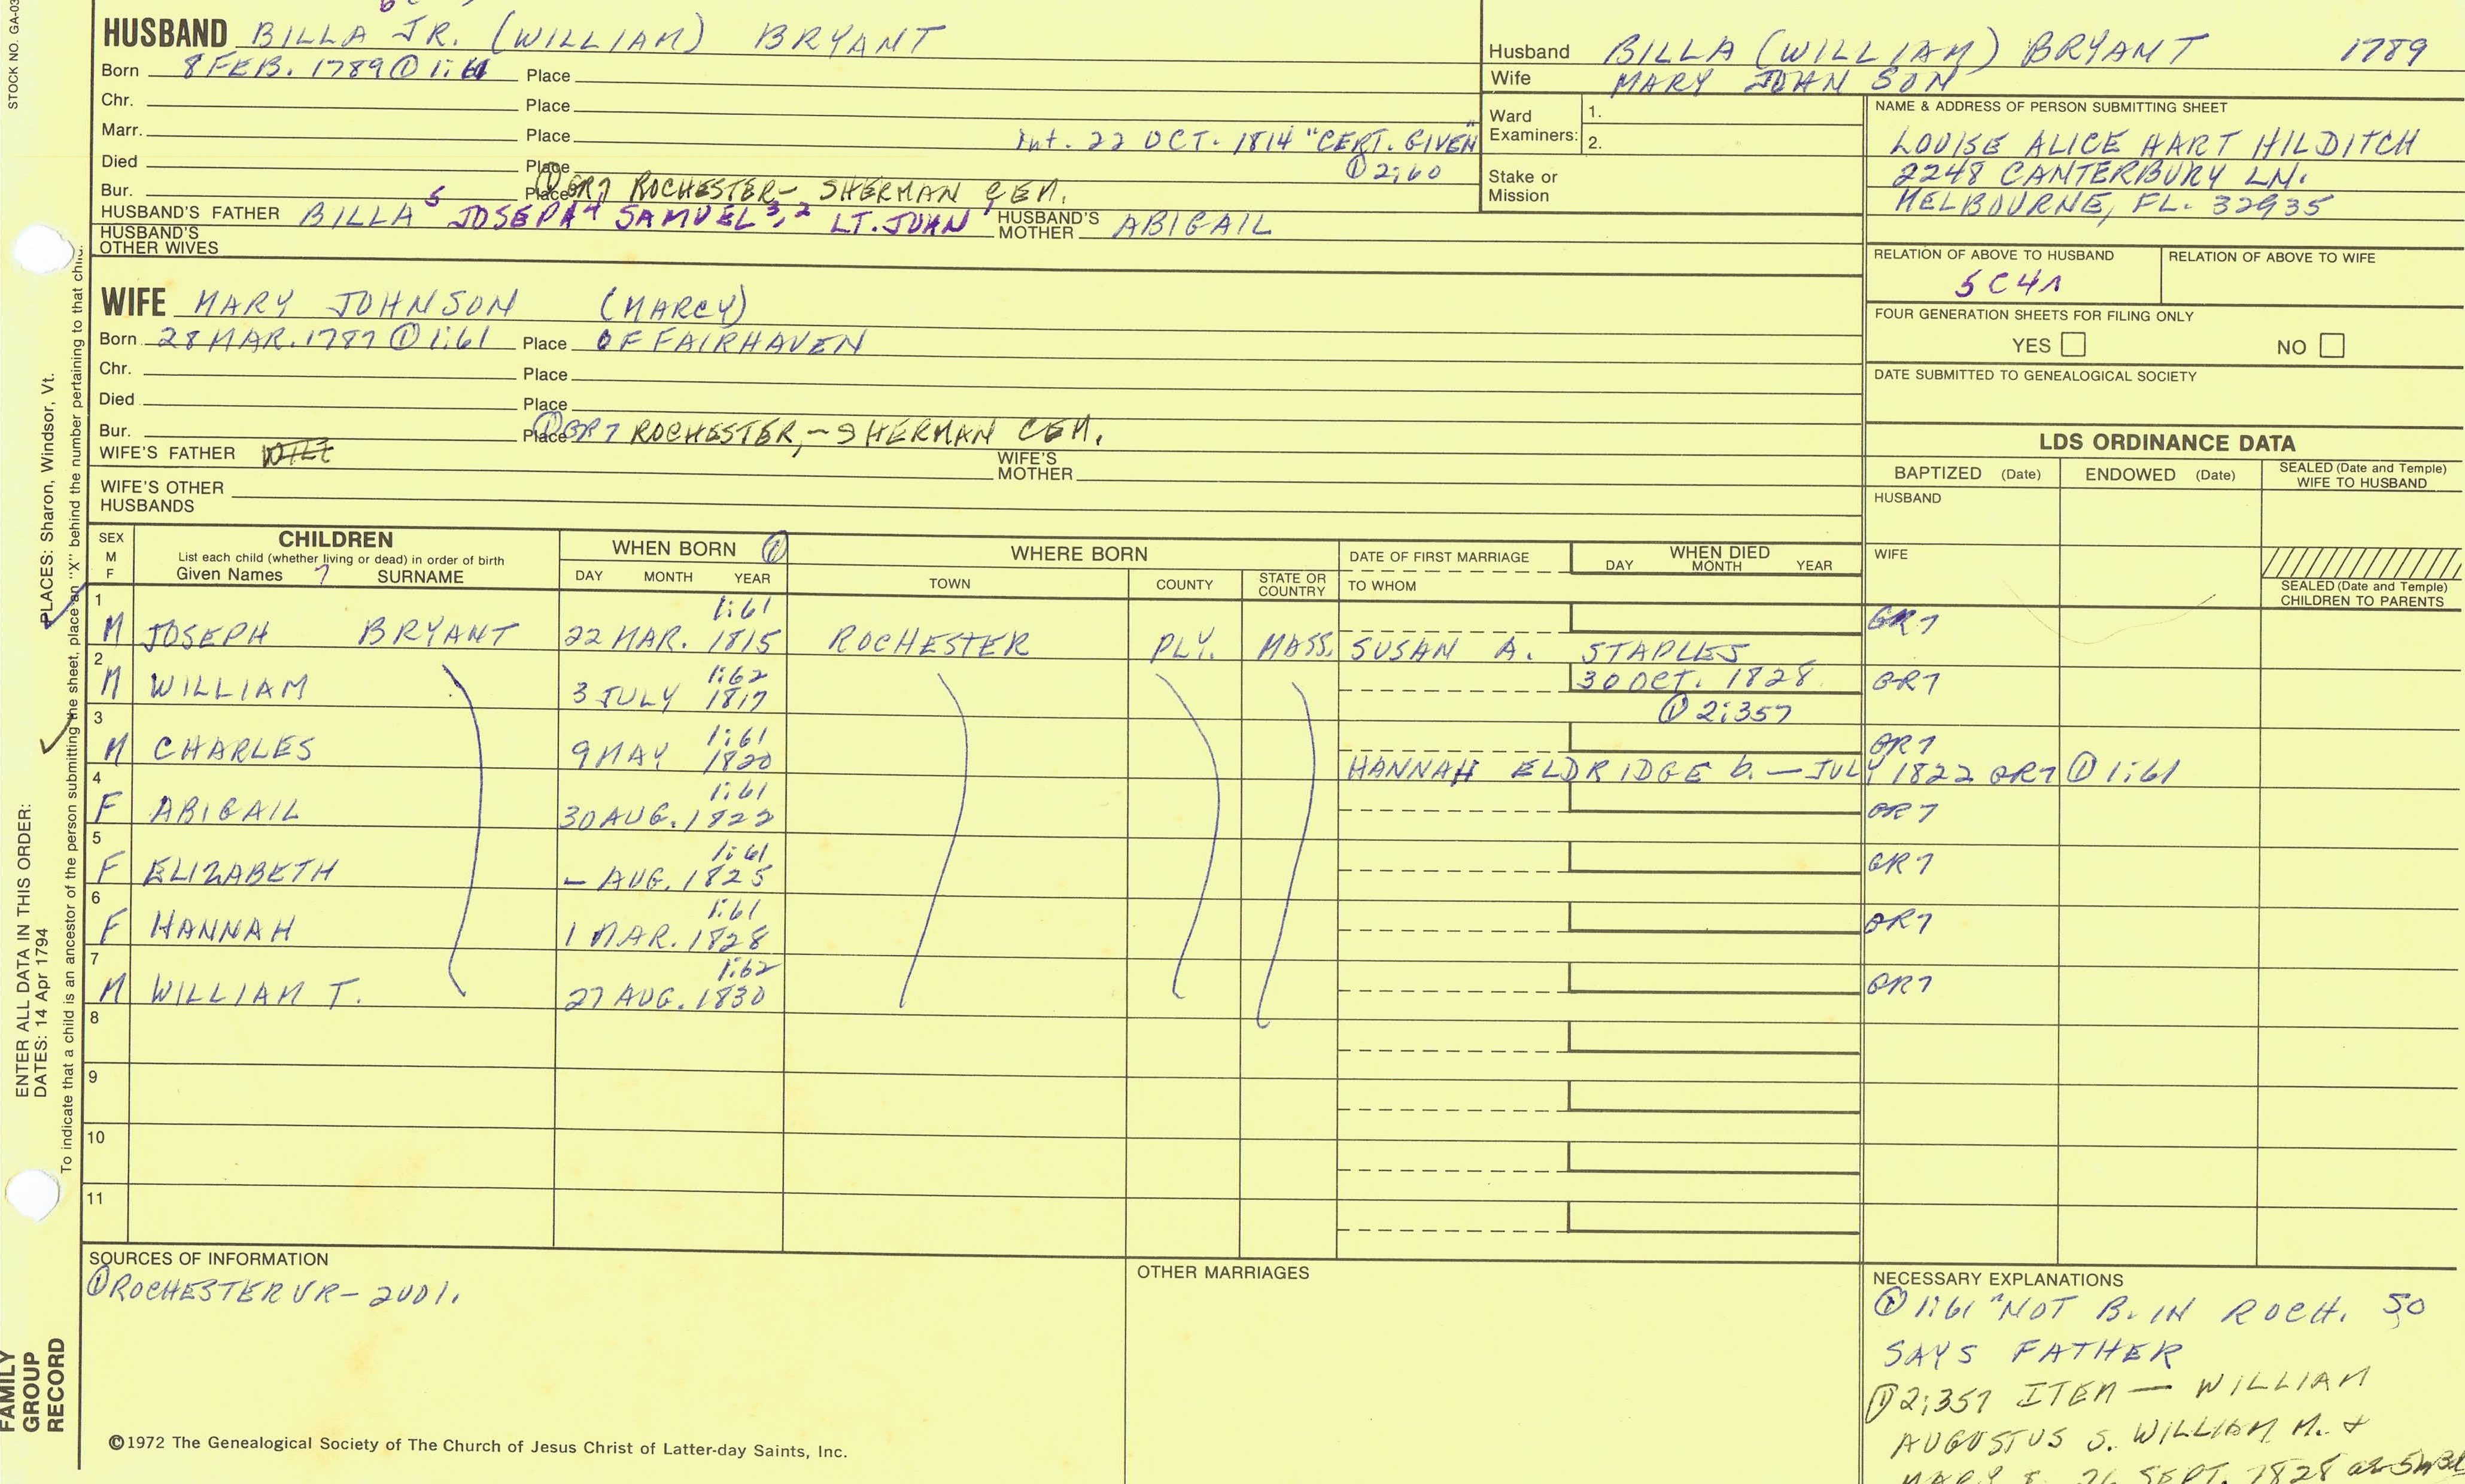 STOCK NO. GA-03
HUSBAND BILLA JR. (WILLIAM) BRYANT
Born 8 FEB. 1789 ① 1:61 Place
Chr. Place
Marr. Place Int. 22 OCT. 1814 "CERT. GIVEN"
① 2:60
Died Place
Bur. Place ① GR7 ROCHESTER - SHERMAN CEM.
HUSBAND'S FATHER BILLA 5 JOSEPH 4 SAMUEL 3,2 LT. JOHN 1 HUSBAND'S MOTHER ABIGAIL
HUSBAND'S OTHER WIVES
Husband BILLA (WILLIAM) BRYANT 1789
Wife MARY JOHNSON
Ward Examiners: 1.
2.
Stake or Mission
NAME & ADDRESS OF PERSON SUBMITTING SHEET
LOUISE ALICE HART HILDITCH
2248 CANTERBURY LN.
MELBOURNE, FL. 32935
RELATION OF ABOVE TO HUSBAND RELATION OF ABOVE TO WIFE
5C4R
FOUR GENERATION SHEETS FOR FILING ONLY
YES NO
DATE SUBMITTED TO GENEALOGICAL SOCIETY
WIFE MARY JOHNSON (MARCY)
Born 28 MAR. 1787 ① 1:61 Place OF FAIRHAVEN
Chr. Place
Died Place
Bur. Place ① GR7 ROCHESTER, - SHERMAN CEM.
WIFE'S FATHER WIFE'S MOTHER
WIFE'S OTHER HUSBANDS
LDS ORDINANCE DATA
BAPTIZED (Date) ENDOWED (Date) SEALED (Date and Temple) WIFE TO HUSBAND
HUSBAND
WIFE
SEALED (Date and Temple) CHILDREN TO PARENTS
SEX M F CHILDREN WHEN BORN ① WHERE BORN DATE OF FIRST MARRIAGE WHEN DIED
List each child (whether living or dead) in order of birth
Given Names 7 SURNAME DAY MONTH YEAR TOWN COUNTY STATE OR COUNTRY TO WHOM DAY MONTH YEAR
1 M JOSEPH BRYANT 22 MAR. 1815 1:61 ROCHESTER PLY. MASS. SUSAN A. STAPLES GR7
2 M WILLIAM 3 JULY 1817 1:62 30 OCT. 1828 GR7
① 2:357
3 M CHARLES 9 MAY 1820 1:61 GR7
HANNAH ELDRIDGE b. — JULY 1822 GR7 ① 1:61
4 F ABIGAIL 30 AUG. 1822 1:61 GR7
5 F ELIZABETH - AUG. 1825 1:61 GR7
6 F HANNAH 1 MAR. 1828 1:61 GR7
7 M WILLIAM T. 27 AUG. 1830 1:62 GR7
8
9
10
11
SOURCES OF INFORMATION
① ROCHESTER VR - 2 VOL.
OTHER MARRIAGES
NECESSARY EXPLANATIONS
① 1:61 "NOT B. IN ROCH. SO
SAYS FATHER
① 2:357 ITEM — WILLIAM
AUGUSTUS S. WILLIAM M. &
MARY 26 SEPT. 1828
©1972 The Genealogical Society of The Church of Jesus Christ of Latter-day Saints, Inc.
ENTER ALL DATA IN THIS ORDER:
DATES: 14 Apr 1794
PLACES: Sharon, Windsor, Vt.
To indicate that a child is an ancestor of the person submitting the sheet, place an "X" behind the number pertaining to that child.
FAMILY
GROUP
RECORD